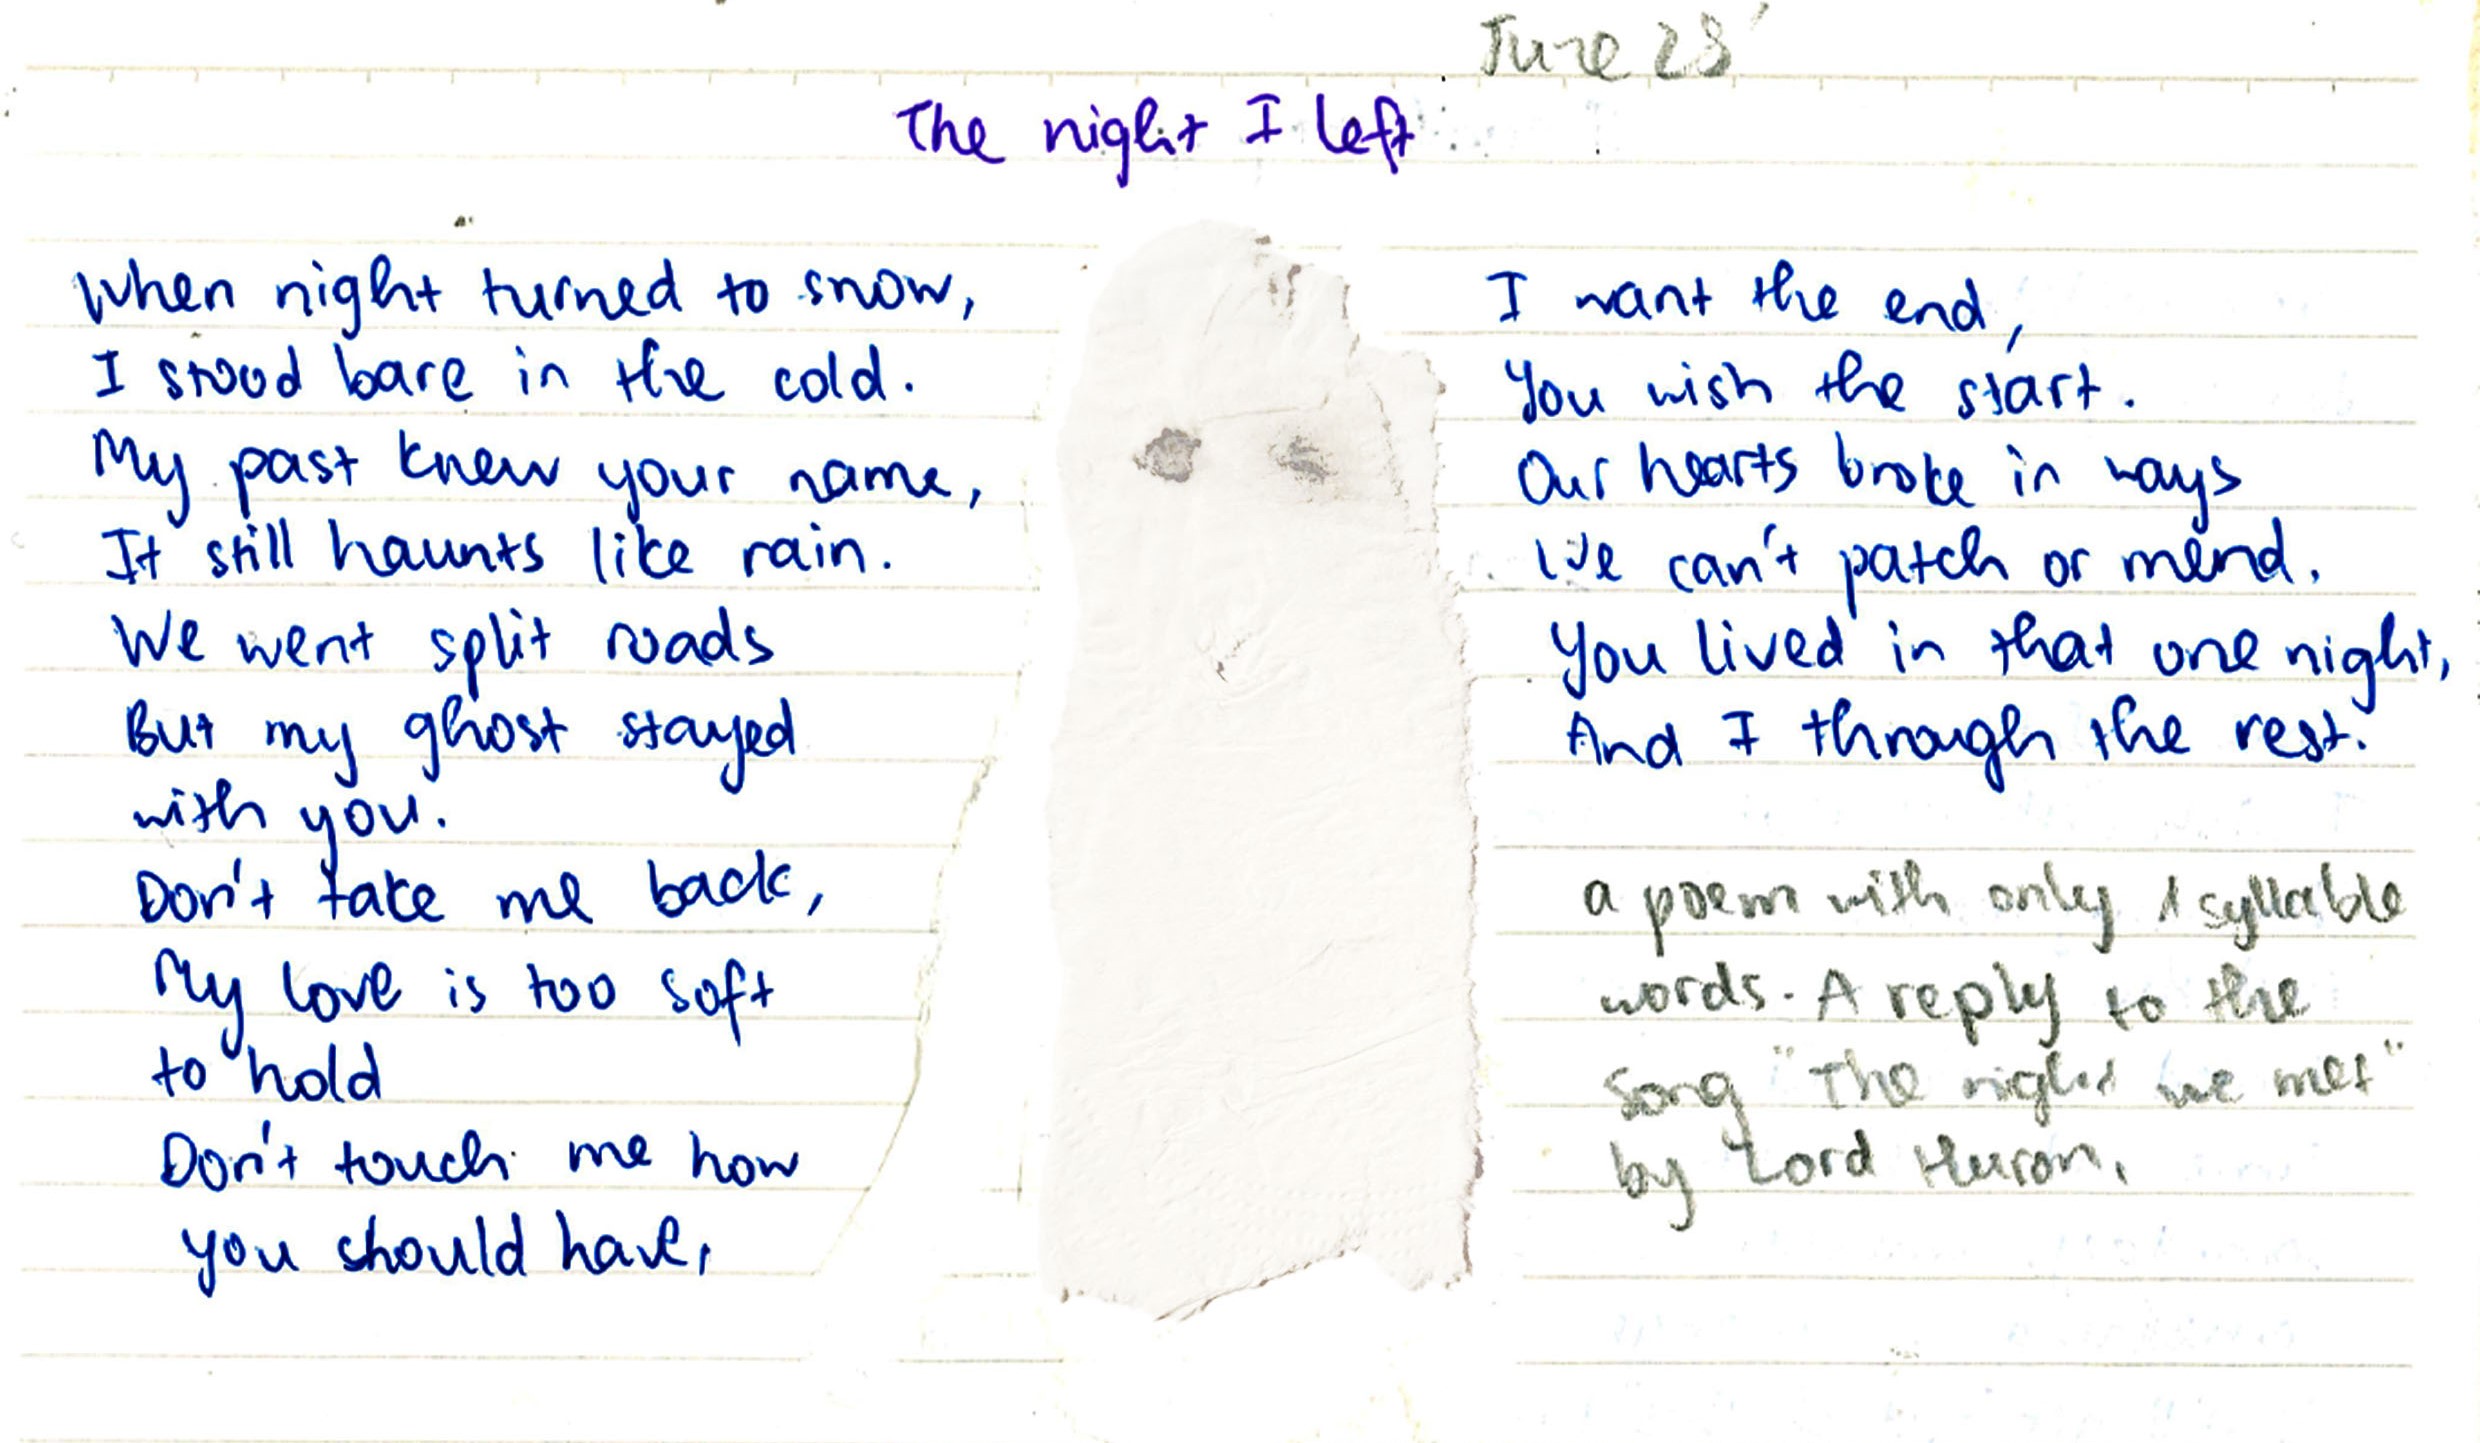 June 23'
The night I left
When night turned to snow,
I stood bare in the cold.
My past knew your name,
It still haunts like rain.
We went split roads
But my ghost stayed
with you.
Don't take me back,
My love is too soft
to hold
Don't touch me how
you should have,
I want the end,
You wish the start.
Our hearts broke in ways
We can't patch or mend.
You lived in that one night,
And I through the rest.
a poem with only 1 syllable
words. A reply to the
song "The night we met"
by Lord Huron.